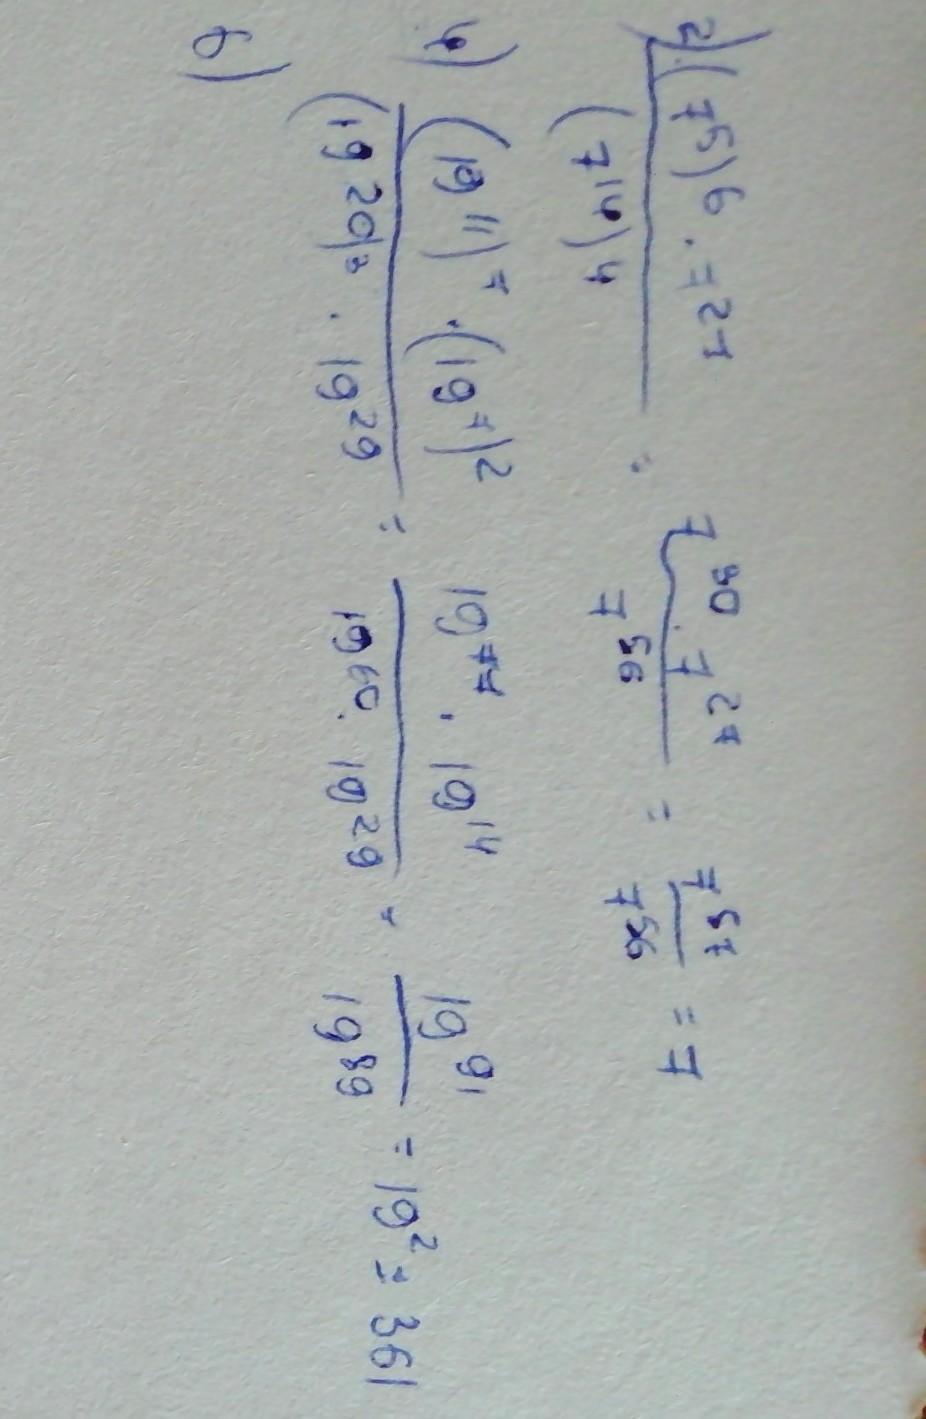 2) (7⁵)⁶ · 7²⁷ / (7¹⁴)⁴ = 7³⁰ · 7²⁷ / 7⁵⁶ = 7⁵⁷ / 7⁵⁶ = 7
4) (19¹¹)⁷ · (19⁷)² / (19²⁰)³ · 19²⁹ = 19⁷⁷ · 19¹⁴ / 19⁶⁰ · 19²⁹ = 19⁹¹ / 19⁸⁹ = 19² = 361
6)